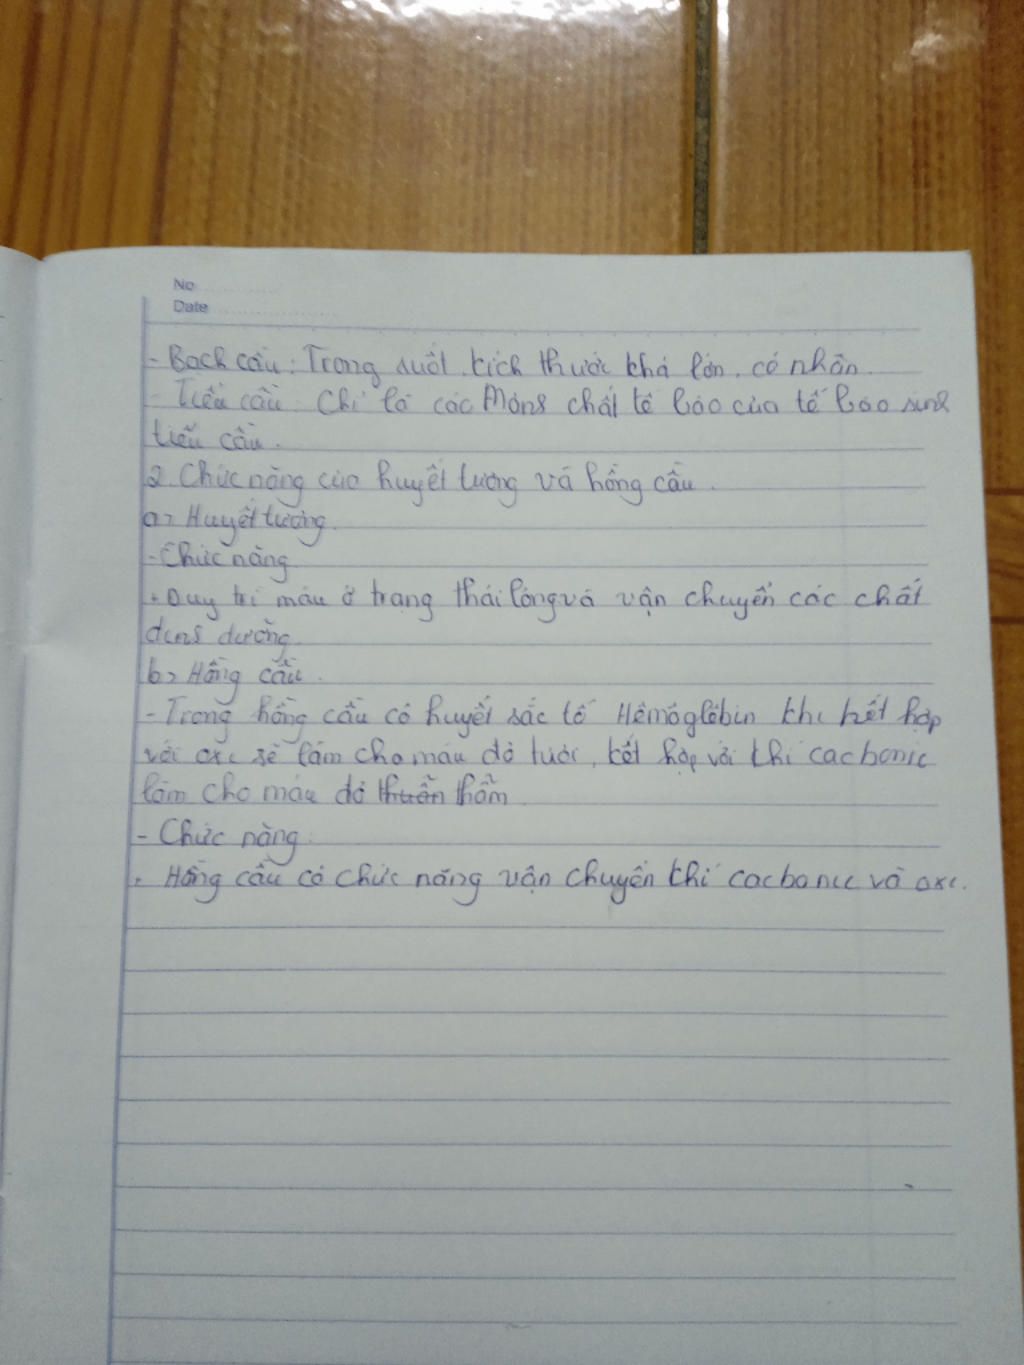 No
Date
- Bạch cầu: Trong suốt, kích thước khá lớn, có nhân.
- Tiểu cầu: Chỉ là các mảng chất tế bào của tế bào sinh
tiểu cầu.
2. Chức năng của huyết tương và hồng cầu.
a> Huyết tương.
- Chức năng
+ Duy trì máu ở trạng thái lỏng và vận chuyển các chất
dinh dưỡng.
b> Hồng cầu.
- Trong hồng cầu có huyết sắc tố Hêmôglôbin khi kết hợp
với oxi sẽ làm cho máu đỏ tươi, kết hợp với khí cacbonic
làm cho máu đỏ thẫm
- Chức năng:
+ Hồng cầu có chức năng vận chuyển khí cacbonic và oxi.